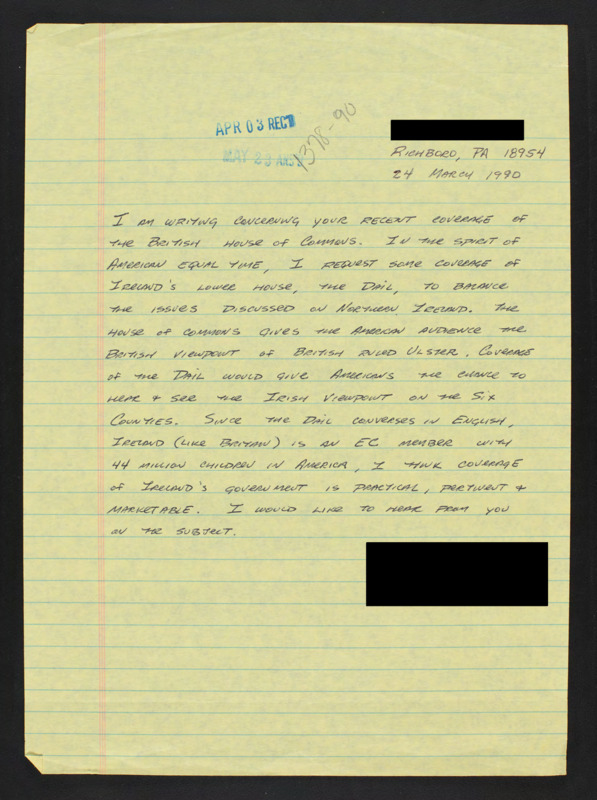 APR 03 REC'D
MAY 23 ANS'D
1378-90
RICHBORO, PA 18954
24 MARCH 1990
I AM WRITING CONCERNING YOUR RECENT COVERAGE OF
THE BRITISH HOUSE OF COMMONS. IN THE SPIRIT OF
AMERICAN EQUAL TIME, I REQUEST SOME COVERAGE OF
IRELAND'S LOWER HOUSE, THE DAIL, TO BALANCE
THE ISSUES DISCUSSED ON NORTHERN IRELAND. THE
HOUSE OF COMMONS GIVES THE AMERICAN AUDIENCE THE
BRITISH VIEWPOINT OF BRITISH RULED ULSTER. COVERAGE
OF THE DAIL WOULD GIVE AMERICANS THE CHANCE TO
HEAR & SEE THE IRISH VIEWPOINT ON THE SIX
COUNTIES. SINCE THE DAIL CONVERSES IN ENGLISH,
IRELAND (LIKE BRITAIN) IS AN EC MEMBER WITH
44 MILLION CHILDREN IN AMERICA, I THINK COVERAGE
OF IRELAND'S GOVERNMENT IS PRACTICAL, PERTINENT &
MARKETABLE. I WOULD LIKE TO HEAR FROM YOU
ON THE SUBJECT.